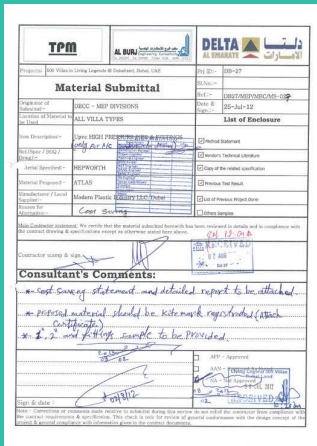 TPM
AL BURJ Engineering Consultants
DELTA دلتــا
AL EMARATE الامــارات
Projects: 500 Villas in Living Legends @ Dubailand, Dubai, UAE
Prj ID:- DB-27
Material Submittal
Sl.No:-
Ref:- DB27/MEP/MBC/MS-03
Originator of Submittal:- DECC - MEP DIVISIONS
Date & Sign.:- 25-Jul-12
Location of Material to be Used ALL VILLA TYPES
List of Enclosure
Item Description:- Upvc HIGH PRESSURE PIPE & FITTINGS
only for A/c
Method Statement
Ref.(Spec / BOQ / Drwg):-
Vendor's Technical Literature
Aerial Specified:- HEPWORTH
Copy of the related specification
Material Proposed:- ATLAS
Previous Test Result
Manufacturer / Local Supplier:- Modern Plastic Industry LLC, Dubai
List of Previous Project Done
Reason for Alternative:- Cost Saving
Others Samples
Main Contractor statement: We certify that the material submitted herewith has been reviewed in details and in compliance with
the contract drawing & specifications except as otherwise stated here above.
Contractor stamp & sign.
RECEIVED
02 AUG
Consultant's Comments:
* Cost saving statement and detailed report to be attached.
* proposed material should be kitemark registrated (attach
Certificate)
* 1", 2" and fittings sample to be provided.
APP - Approved
AAN -
NA - Not Approved
Living Legend 500 Villas
Dubai Land
RECEIVED
Sign & date :
02/8/12
Note:- Corrections or comments made relative to submittal during this review do not relief the contractor from compliance with
the contract requirements & specification. This check is only for review of general conformance with the design concept of the
project & general compliance with information given in the contract documents.